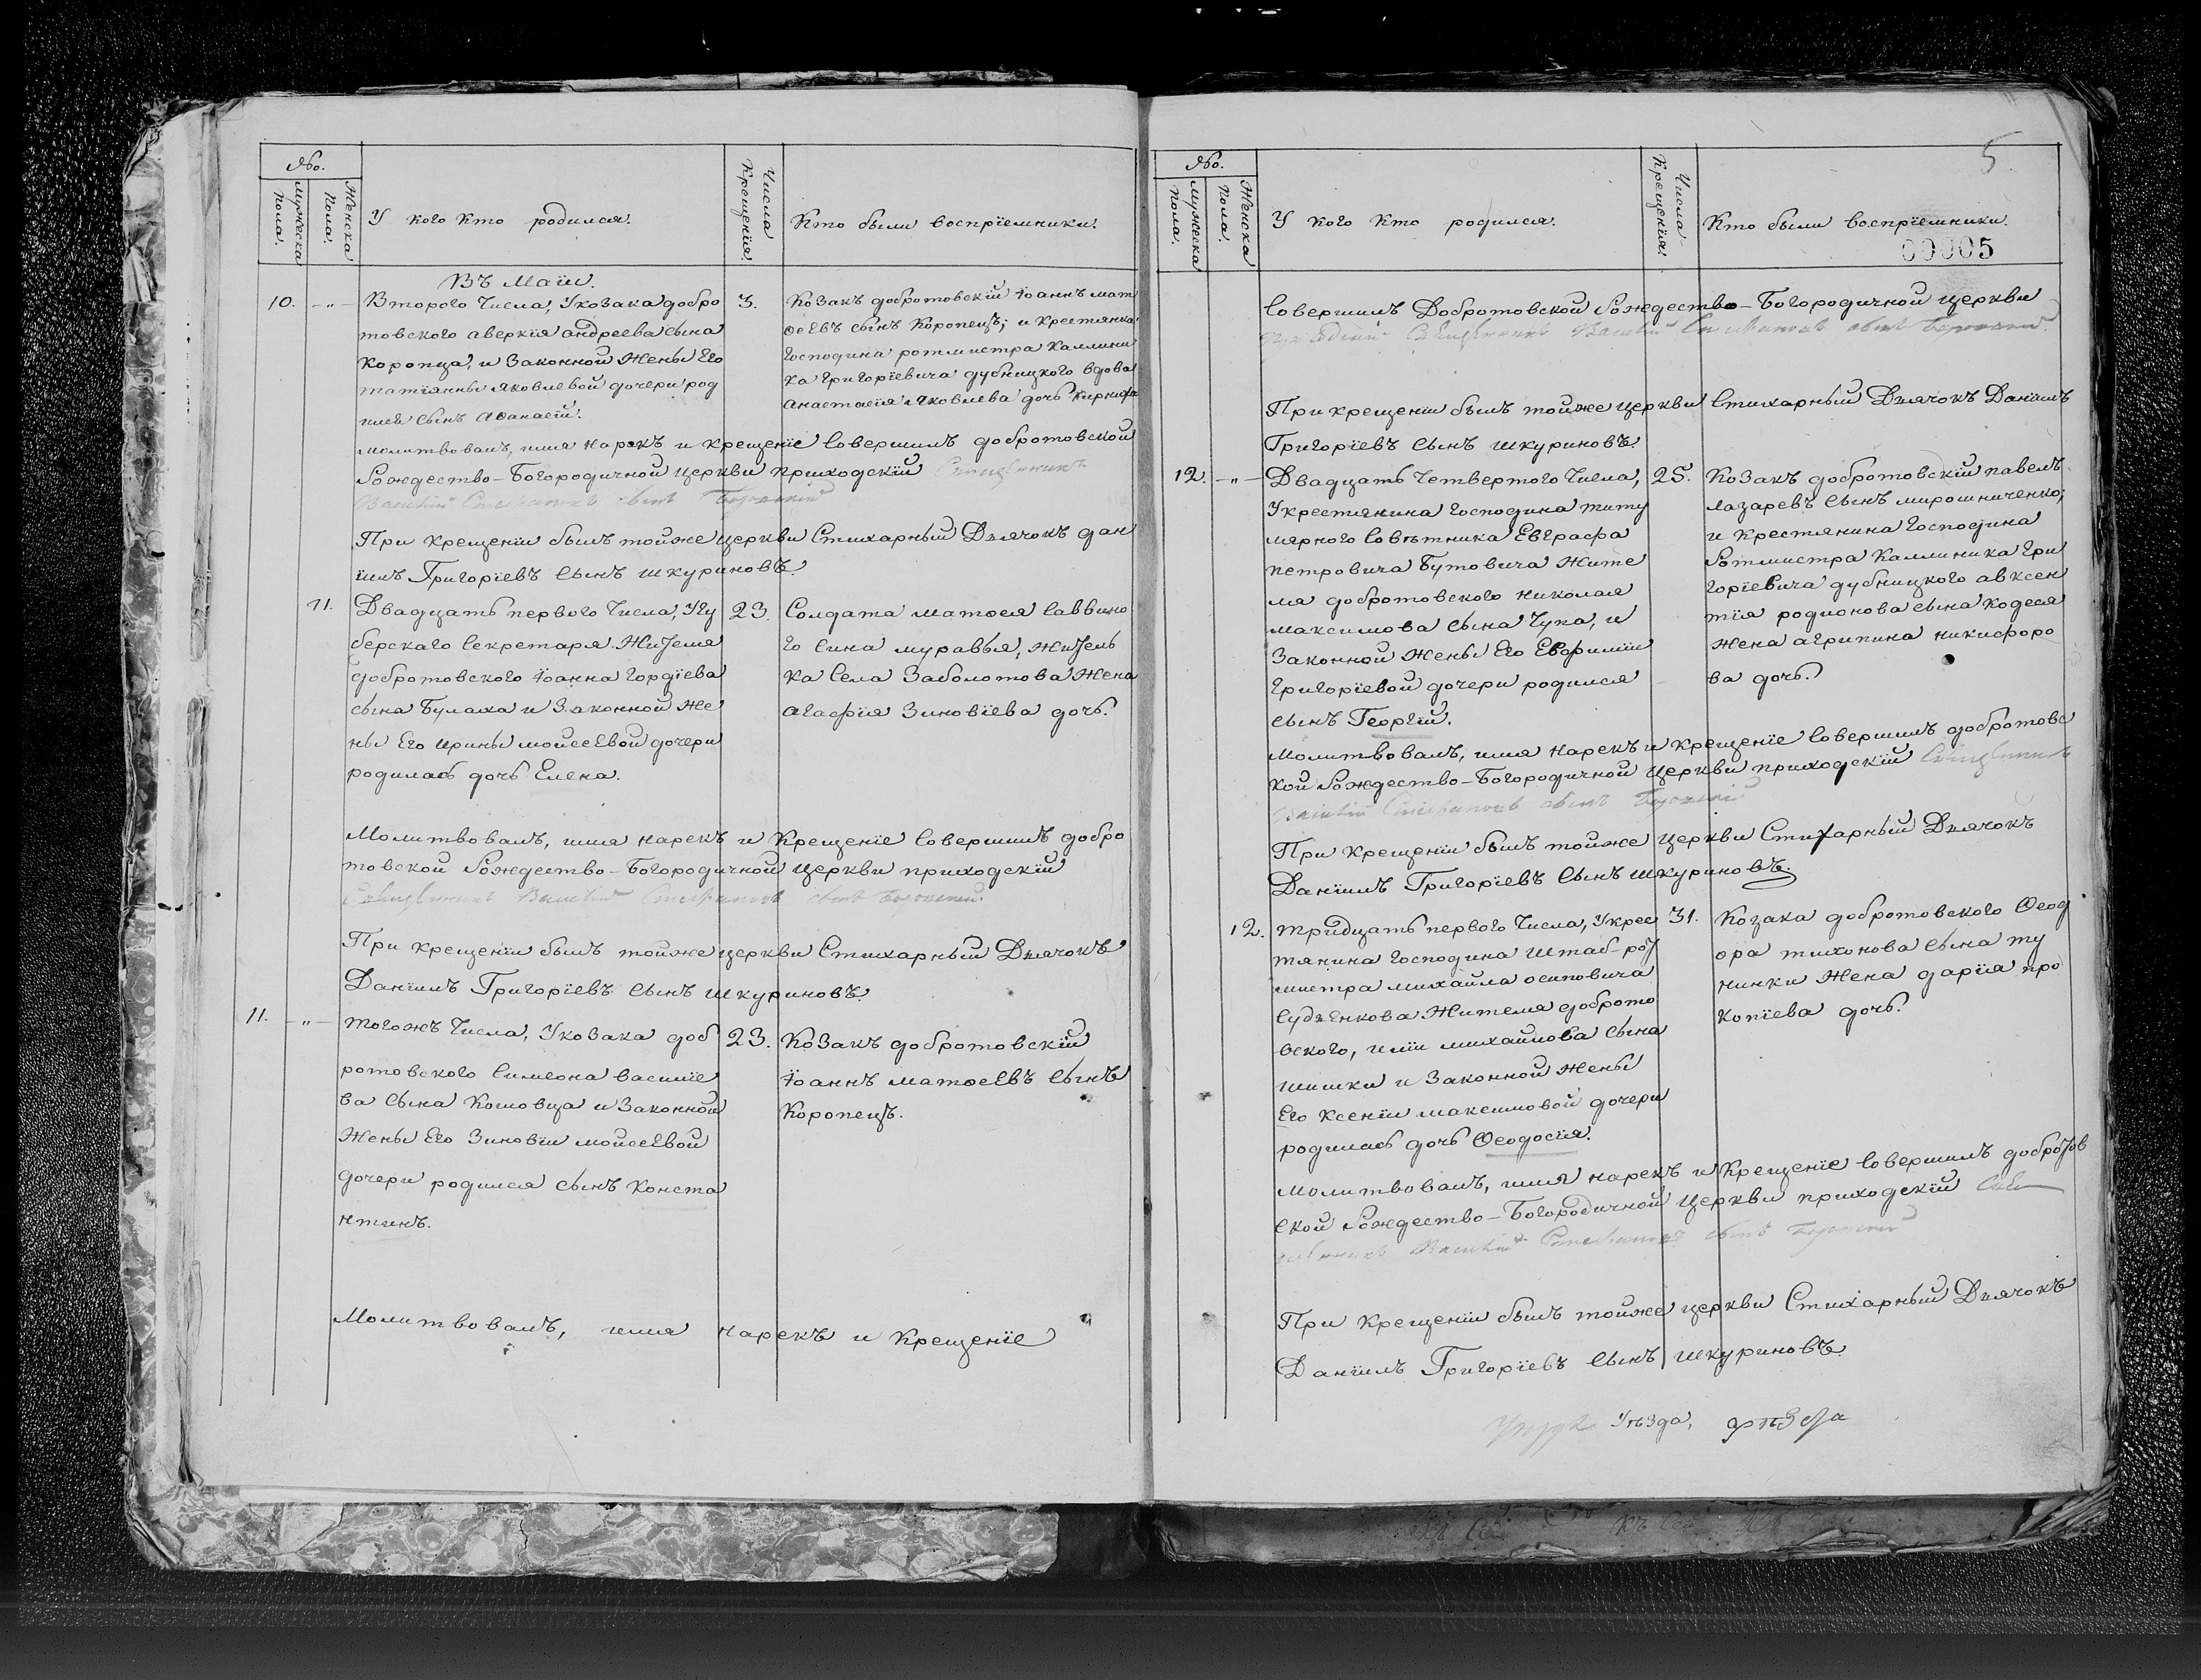 №.
Мужеска пола.
Женска пола.
У кого кто родился.
Числа Крещенїя.
Кто были воспрїемники.
Въ Маїи.
10. -„-
Второго Числа, У козака добро
товского аверкїя андреева сына
Коропца, и Законной Жены Его
татїянны яковлевой дочери род
ился сынъ Аѳанасїй.
3.
Козакъ добротовскїй Іоаннъ мат
ѳеевъ сынъ Коропецъ; и Крестянка
Господина ротмистра Каллини
ка Григорїевича дубницкого вдова
Анастасїя яковлева дочь
молитвовалъ, имя нарекъ и крещенїе совершилъ добротовской
Рождество-Богородичной церкви приходскїй Священникъ
Василїй Стефановъ сынъ
При крещенїи былъ тойже церкви Стихарный Дьячокъ дан
їилъ Григорїевъ сынъ шкуриновъ.
11.
Двадцать первого Числа, У гу
берскаго секретаря Жителя
добротовского Іоанна гордїева
сына Булаха и Законной Же
ны Его ирины мойсеевой дочери
родилась дочь Елена.
23.
Солдата матѳея саввино
го сина муравья, житель
ка села Заболотова Жена
агафїя Зиновїева дочь.
Молитвовалъ, имя нарекъ и Крещенїе совершилъ добро
товской Рождество-Богородичной церкви приходскїй
Священникъ Василїй Стефановъ сынъ
При крещенїи былъ тойже церкви Стихарный Дьячокъ
Данїилъ Григорїевъ сынъ шкуриновъ.
11. -„-
тогожъ Числа, У козака доб
ротовского симеона василїе
ва сына Кошовца и Законной
Жены Его Зиновїи мойсеевой
дочери родился сынъ Конста
нтинъ.
23.
Козакъ добротовскїй
Іоаннъ матѳеевъ сынъ
Коропецъ.
Молитвовалъ, имя нарекъ и Крещенїе
5
№.
Мужеска пола.
Женска пола.
У кого кто родился.
Числа Крещенїя.
Кто были воспрїемники.
00005
совершилъ Добротовской Рождество-Богородичной церкви
Священникъ Василїй Стефановъ сынъ
При крещенїи былъ тойже церкви Стихарный Дьячокъ Данїилъ
Григорїевъ сынъ шкуриновъ.
12. -„-
Двадцать Четвертого Числа,
У крестянина господина титу
лярного совѣтника Евграфа
петровича Бутовича Жите
ля добротовского николая
максимова сына Чупа, и
Законной Жены Его Евфимїи
григорїевой дочери родился
сынъ Георгїй.
25.
Козакъ добротовскїй павелъ
лазаревъ сынъ мирошниченко;
и крестянина Господина
Ротмистра Каллиника гри
горїевича дубницкого авксен
тїя родионова сына кодеся
жена агрипина никифоро
ва дочь.
Молитвовалъ, имя нарекъ и крещенїе совершилъ добротовс
кой Рождество-Богородичной церкви приходскїй Священникъ
Василїй Стефановъ сынъ
При крещенїи былъ тойже церкви Стихарный Дьячокъ
Данїилъ Григорїевъ сынъ шкуриновъ.
12.
тридцать первого Числа, У крес
тянина господина Штаб-рот
мистра михайла осиповича
Судьенкова Жителя доброто
вского, илїи михайлова сына
шишки и Законной Жены
Его Ксенїи максимовой дочери
родилась дочь Ѳеодосїя.
31.
Козака добротовского Ѳеод
ора тихонова сына ту
нинки Жена дарїя про
копїева дочь.
Молитвовалъ, имя нарекъ и Крещенїе совершилъ добротов
ской Рождество-Богородичной церкви приходскїй Свя
щенникъ Василїй Стефановъ сынъ
При Крещенїи былъ тойже церкви Стихарный Дьячокъ
Данїилъ Григорїевъ сынъ шкуриновъ.
Уѣзда,